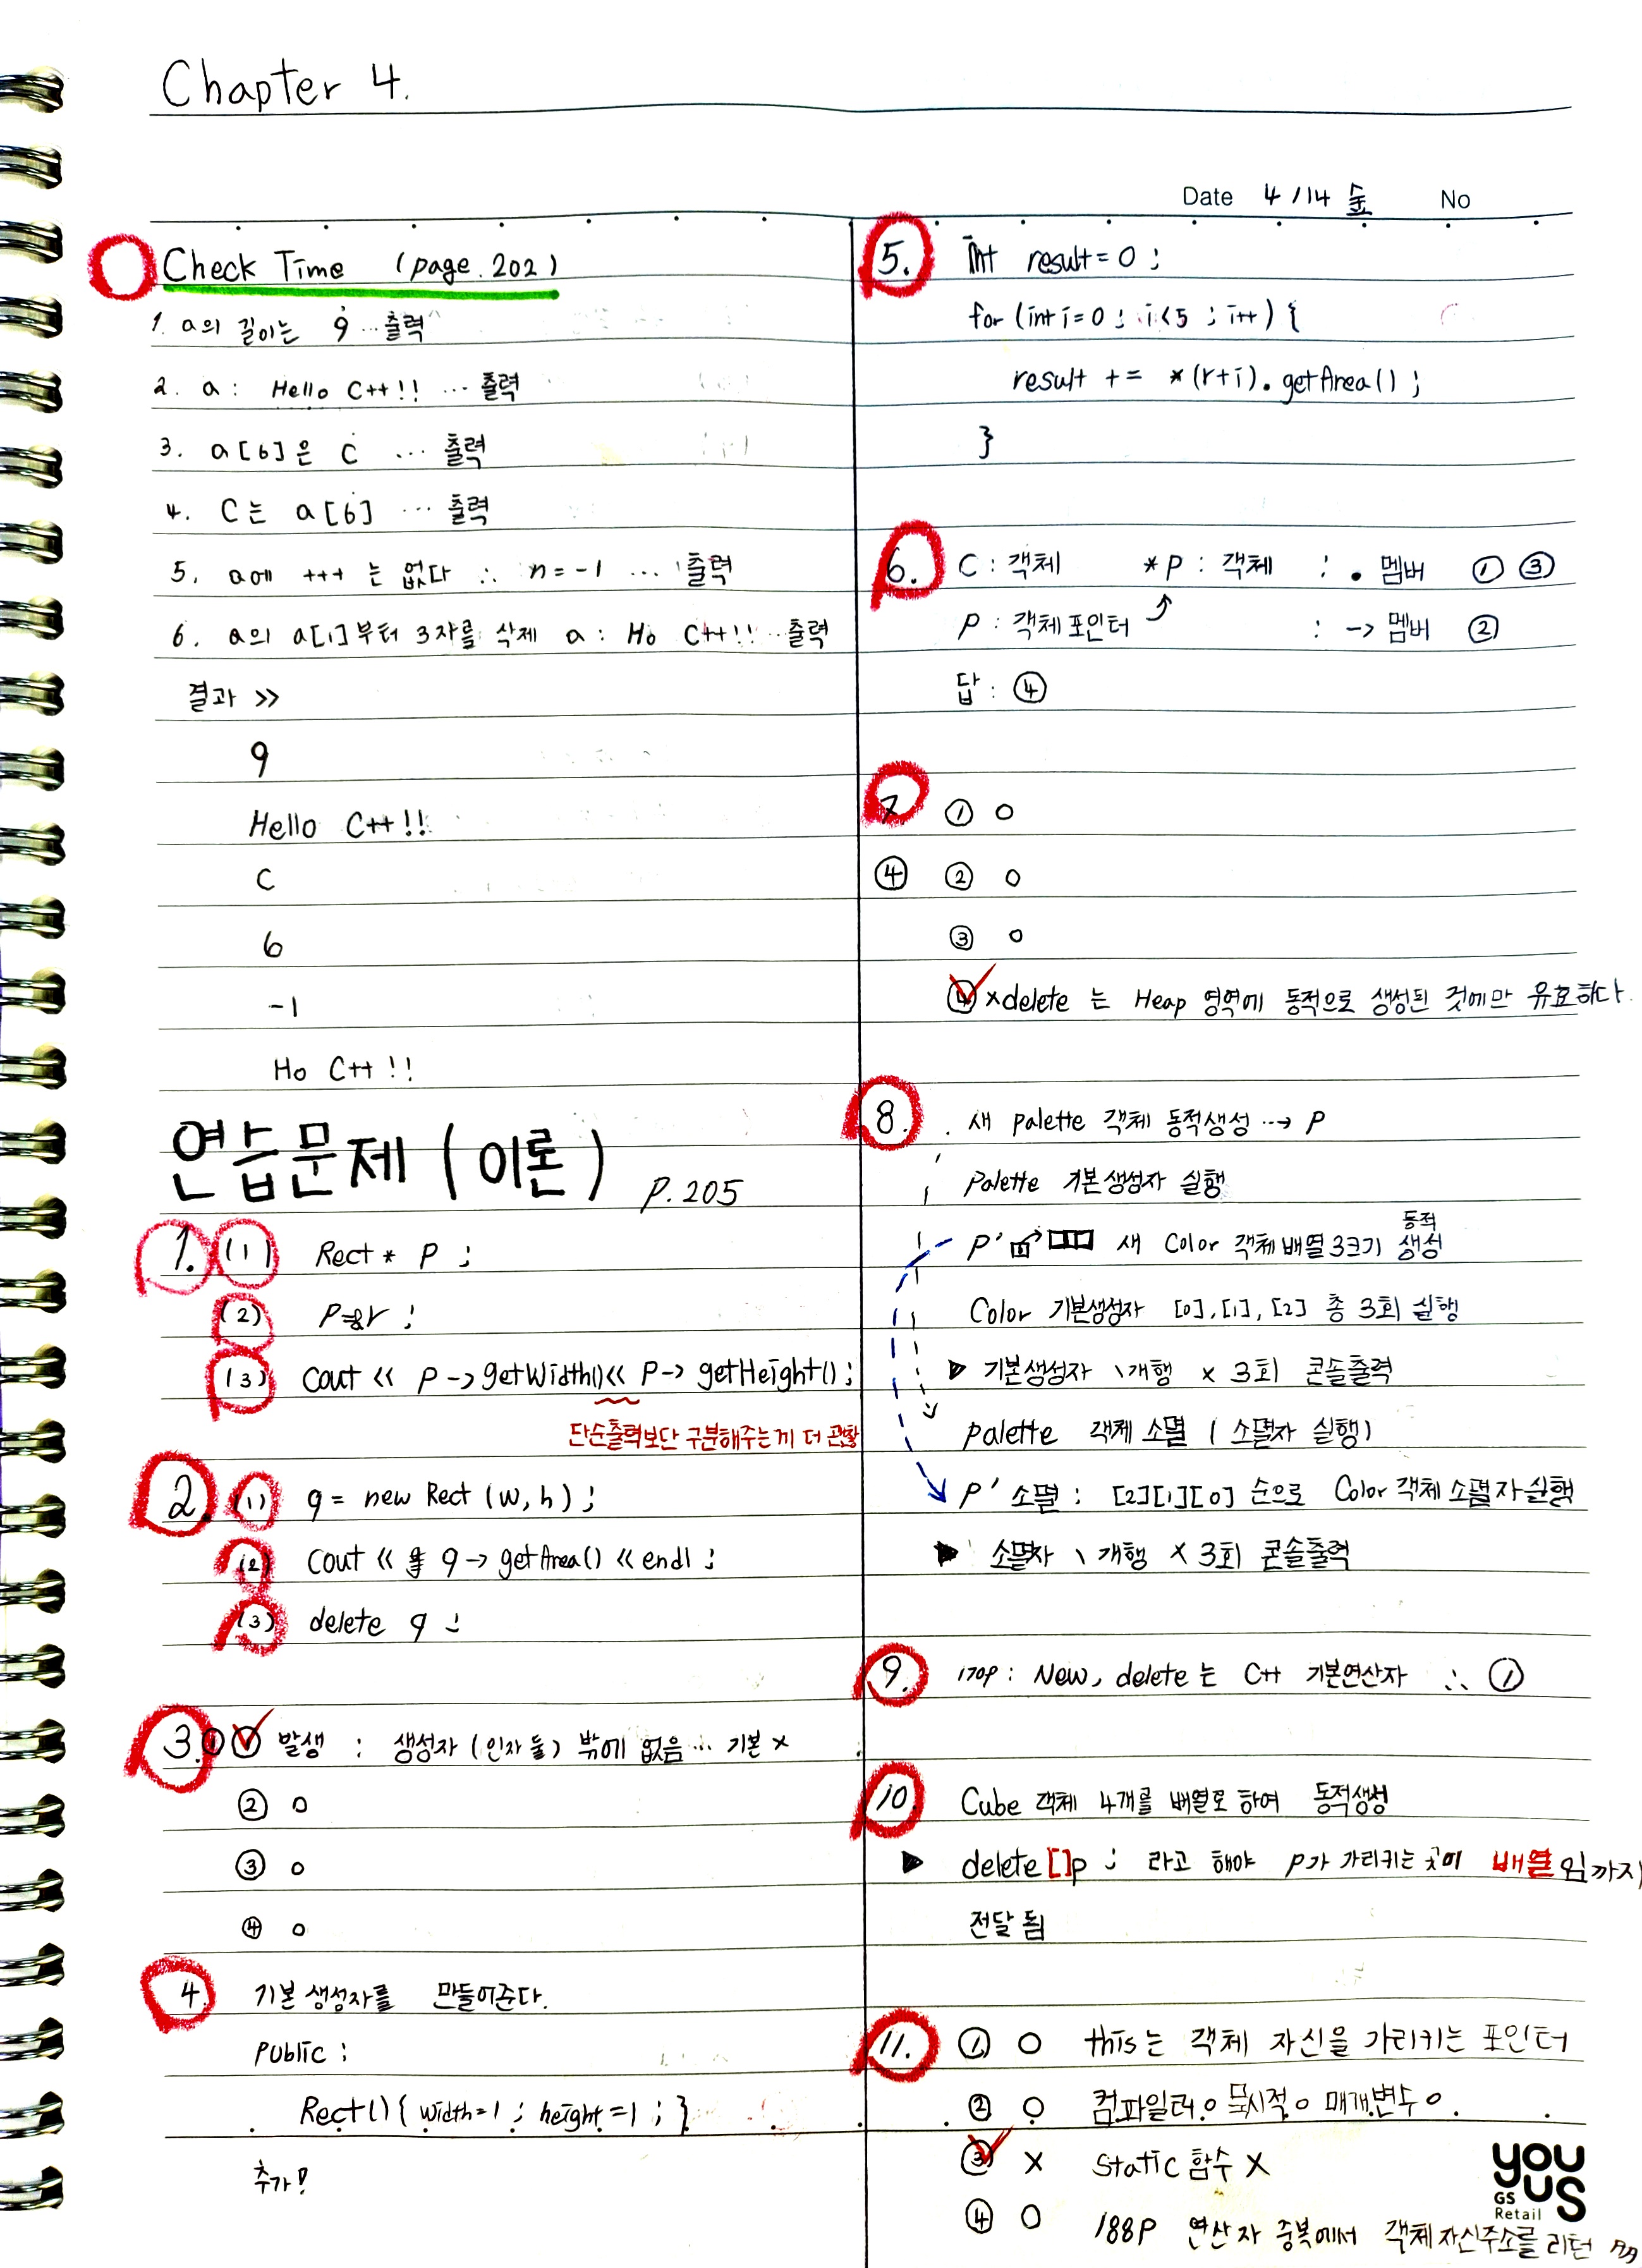 Chapter 4.
Date 4/14 金 No
Check Time (page. 202)
1. a의 길이는 9 … 출력
2. a : Hello C++!! … 출력
3. a[6]은 C … 출력
4. C는 a[6] … 출력
5. a에 +++ 는 없다 ∴ n = -1 … 출력
6. a의 a[1]부터 3자를 삭제 a : Ho C++!! … 출력
결과 >>
9
Hello C++!!
C
6
-1
Ho C++!!
연습문제 (이론) P.205
1. (1) Rect* P ;
(2) P=&r ;
(3) cout << P->getWidth()<< P->getHeight();
단순출력보단 구분해주는게 더
2. (1) q = new Rect (w, h) ;
(2) cout << q->getArea() << endl ;
(3) delete q ;
3. ① 발생 : 생성자 (인자 둘) 밖에 없음 … 기본 x
② o
③ o
④ o
4. 기본 생성자를 만들어준다.
public :
Rect() { width=1 ; height=1 ; }
추가!
5. int result = 0 ;
for (int i=0 ; i<5 ; i++) {
result += *(r+i).getArea() ;
}
6. C : 객체 *P : 객체 : . 멤버 ① ③
P : 객체포인터 : -> 멤버 ②
답 : ④
7. ① o
④ ② o
③ o
④ x delete 는 Heap 영역에 동적으로 생성된 것에만 유효하다.
8. 새 palette 객체 동적생성 …→ P
palette 기본생성자 실행
P' 새 Color 객체배열 3크기 동적 생성
Color 기본생성자 [0], [1], [2] 총 3회 실행
▶ 기본생성자 \개행 x 3회 콘솔출력
palette 객체 소멸 ( 소멸자 실행)
P' 소멸 : [2][1][0] 순으로 Color 객체 소멸자 실행
▶ 소멸자 \ 개행 x 3회 콘솔출력
9. 170p : New, delete 는 C++ 기본연산자 ∴ ①
10. Cube 객체 4개를 배열로 하여 동적생성
▶ delete []p ; 라고 해야 P가 가리키는 곳이 배열임까지
전달 됨
11. ① O this는 객체 자신을 가리키는 포인터
② O 컴파일러 o 묵시적 o 매개변수 o
③ X static 함수 X
④ O 188P 연산자 중복에서 객체자신주소를 리턴
YOU US
GS Retail